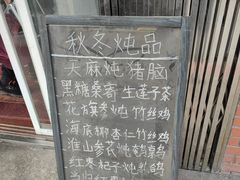 秋冬炖品
天麻炖猪脑
黑糖桑寄生莲子茶
花旗参炖竹丝鸡
海底椰杏仁竹丝鸡
淮山参芪炖鹌鹑
红枣杞子炖乌鸡
当归